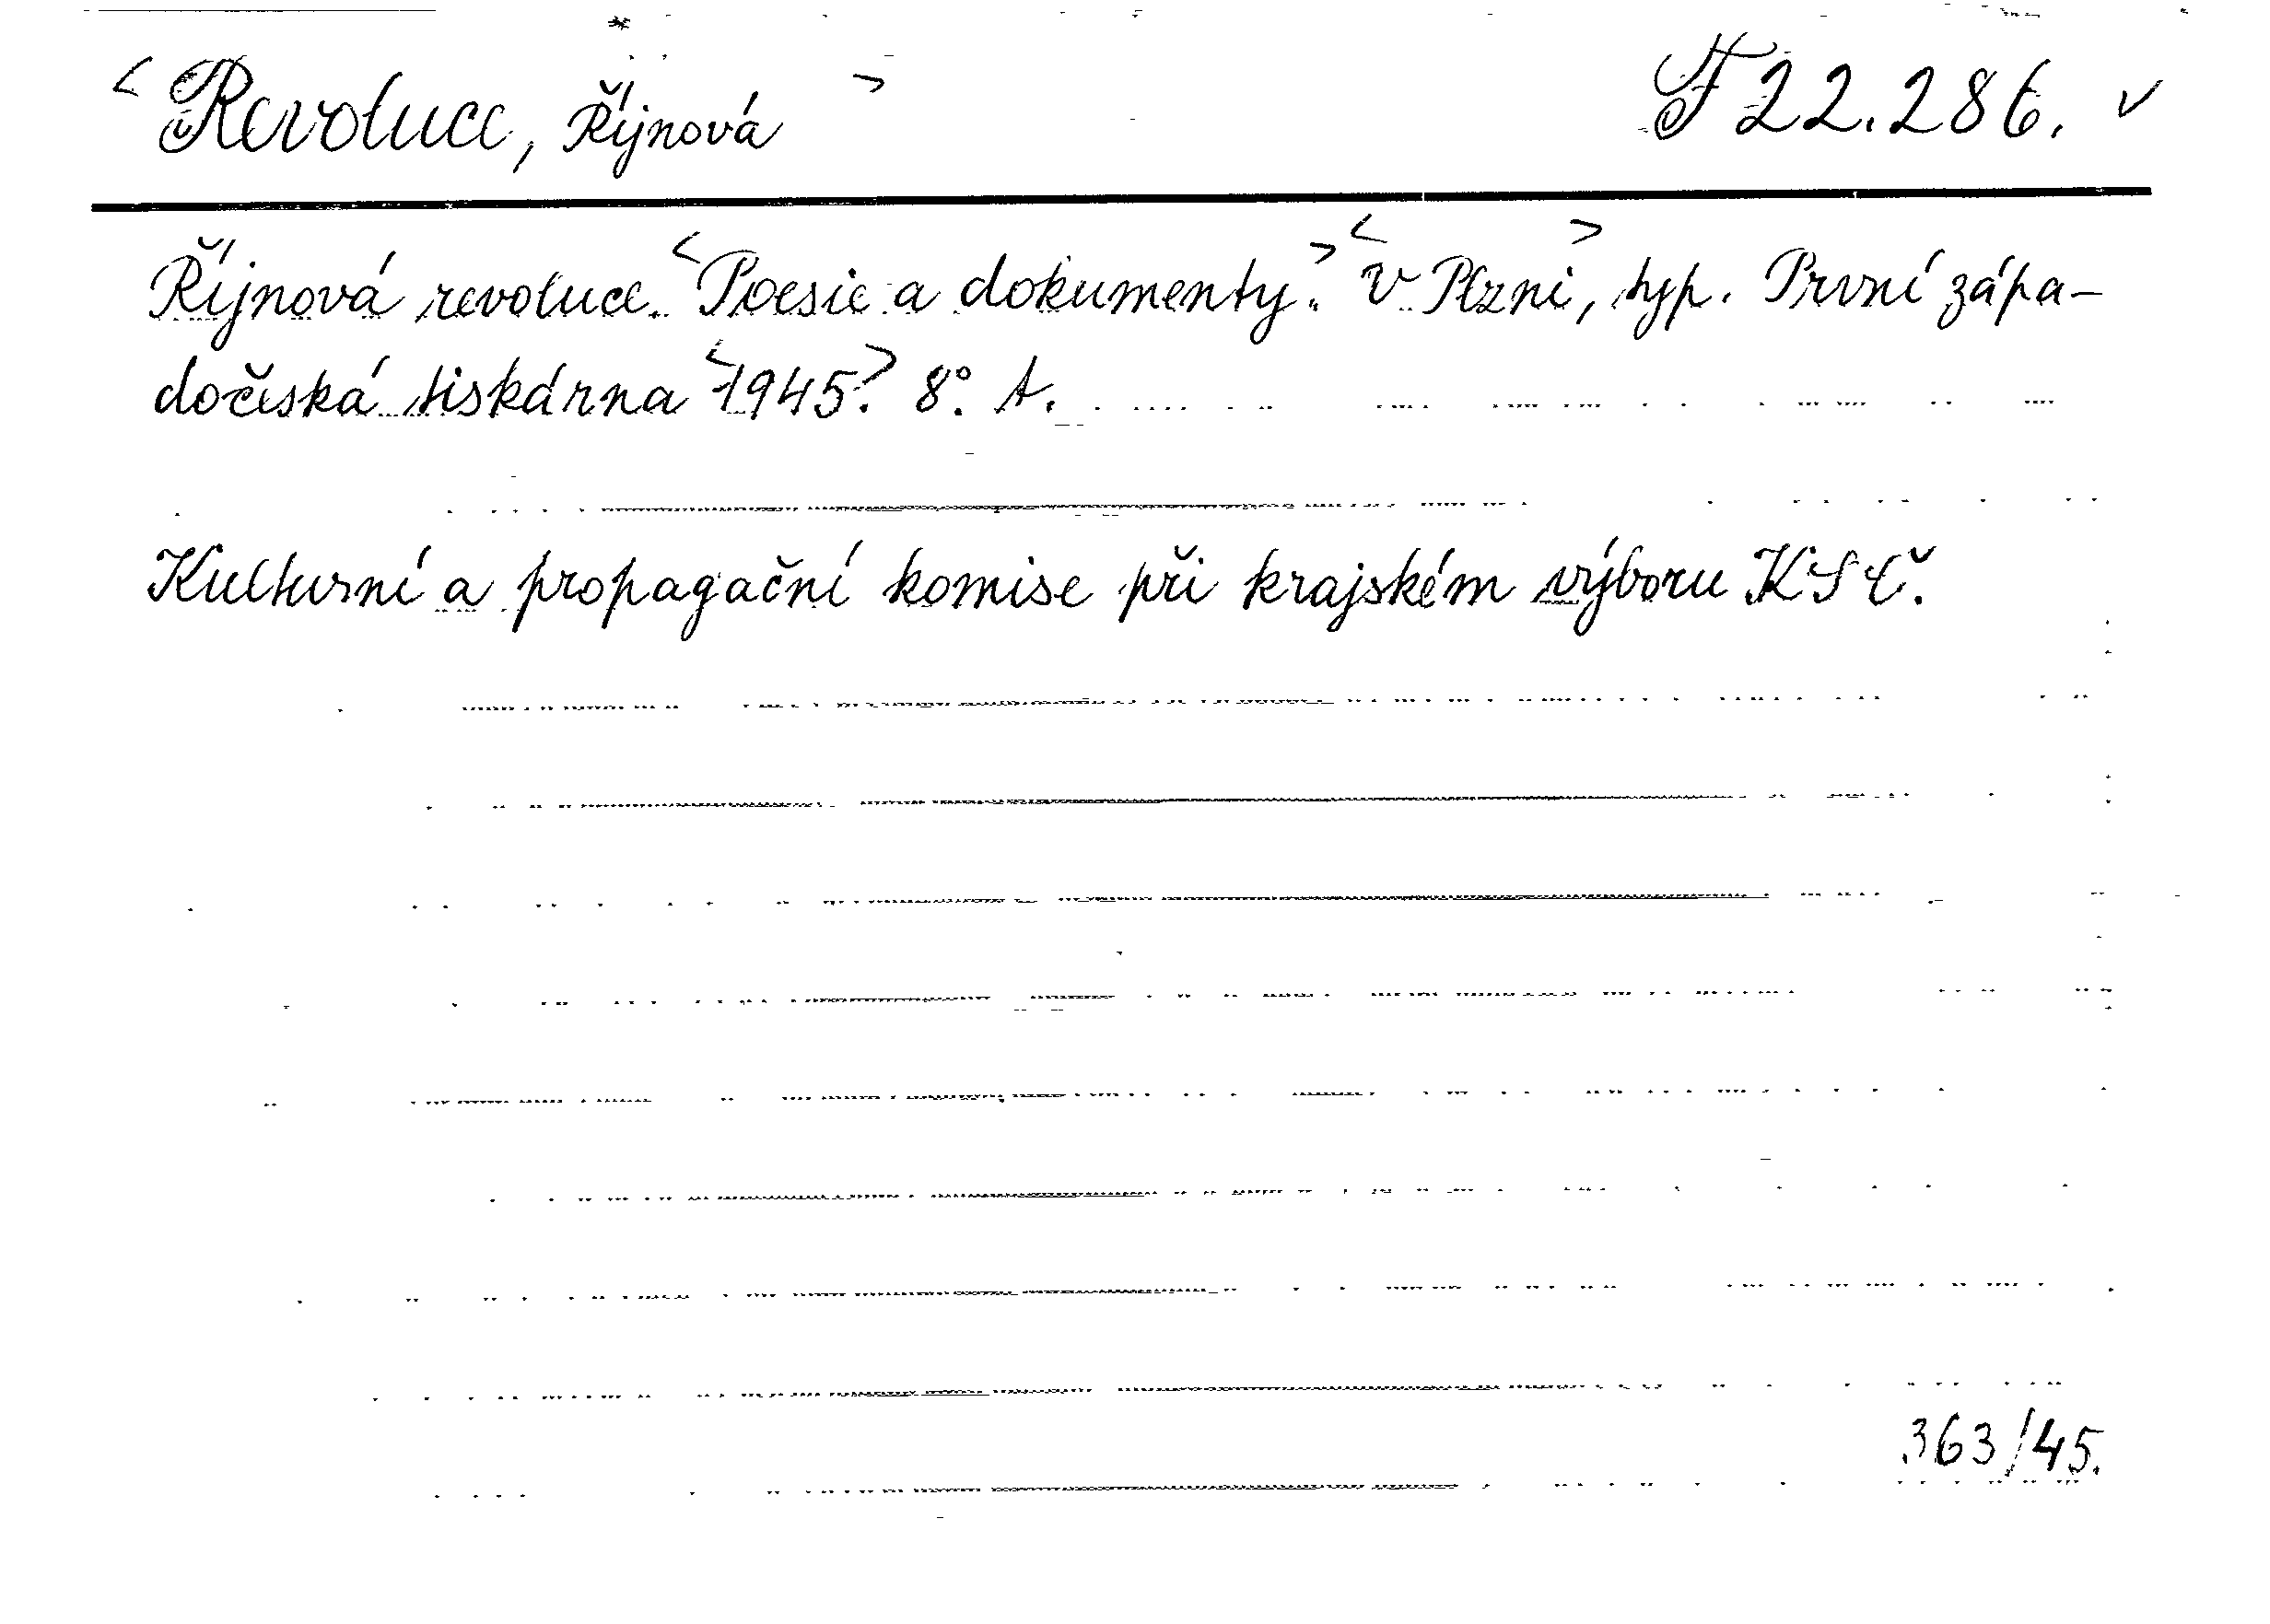 <Revoluce, Říjnová> F 22.286. ✓
Říjnová revoluce. <Poesie a dokumenty.> <V Plzni>, typ. První zápa-
dočeská tiskárna <1945>. 8°. A.
Kulturní a propagační komise při krajském výboru KSČ.
363/45.